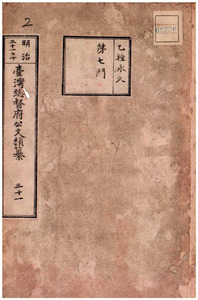 2
乙種永久
第七門
明治
三十九年
臺灣總督府公文類纂
三十一